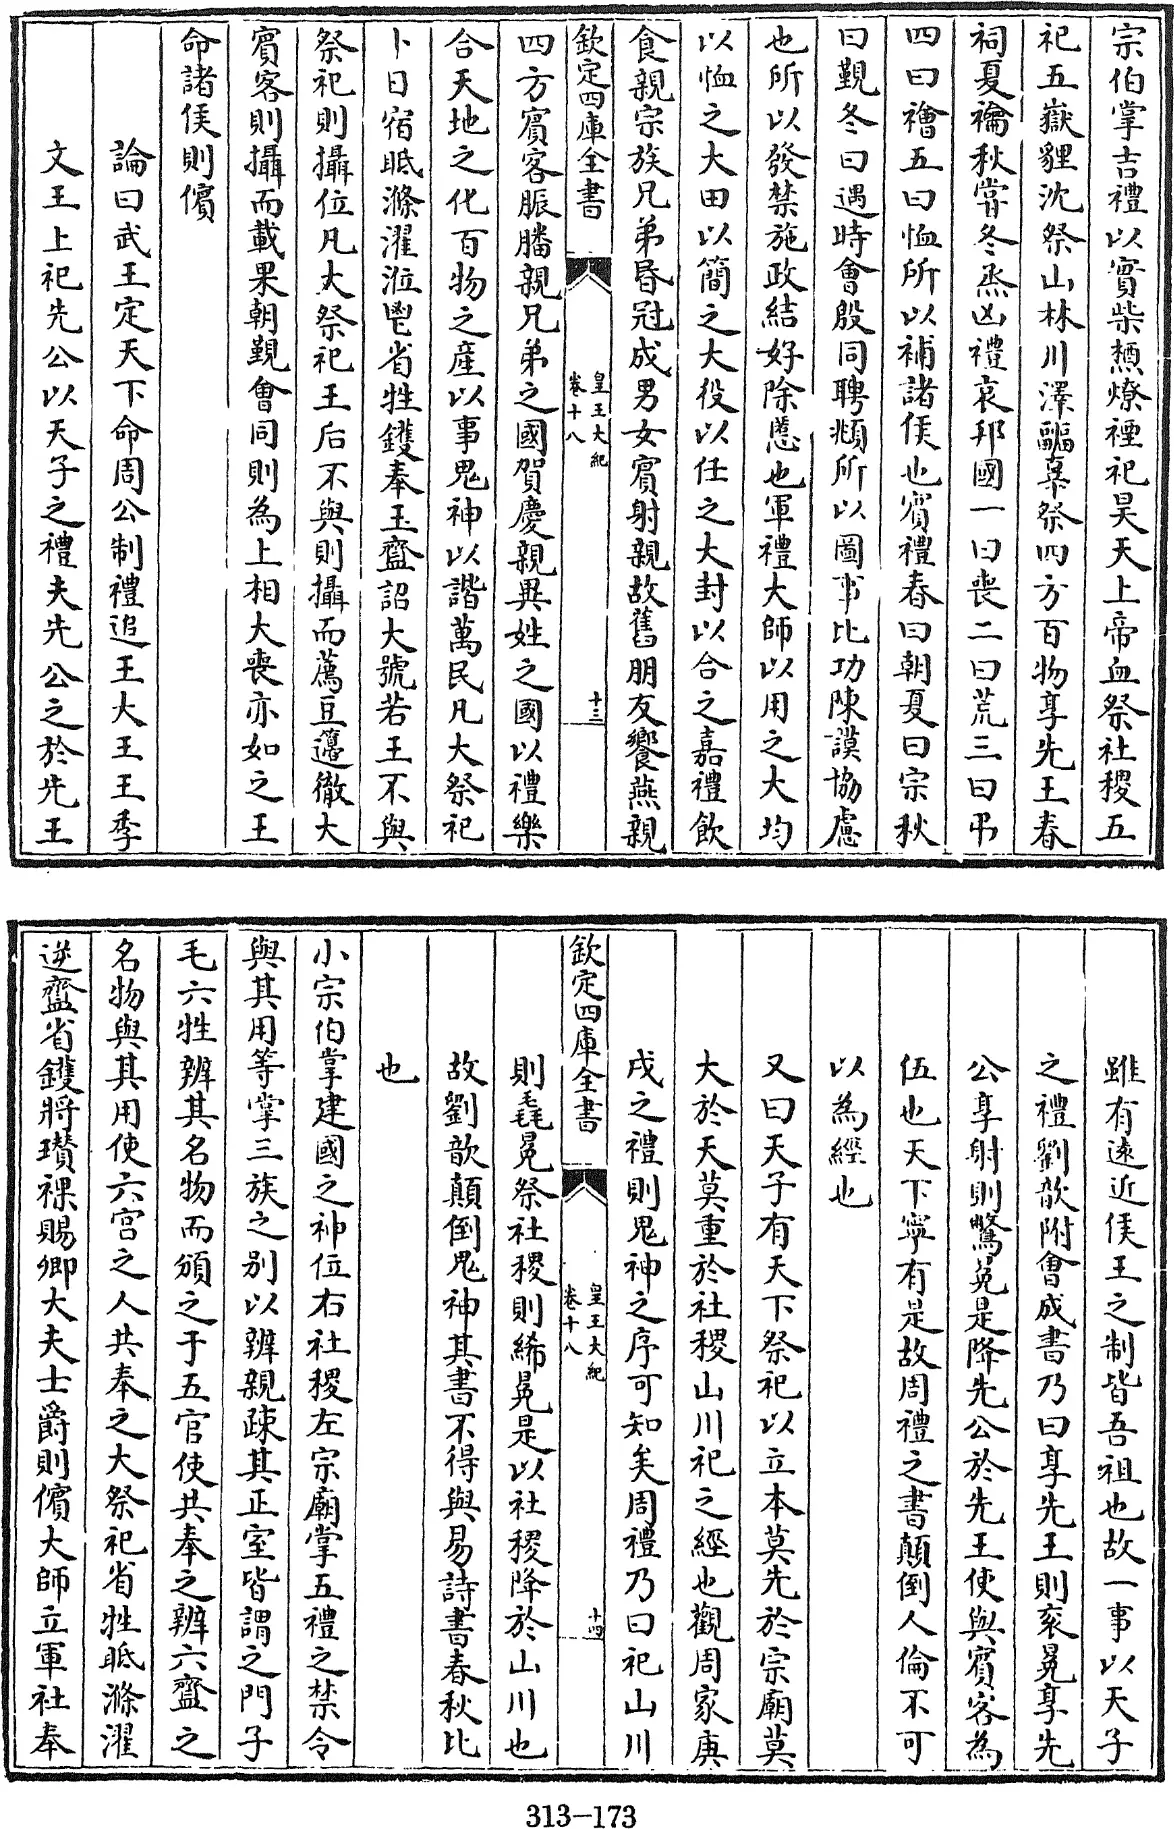 宗伯掌吉禮以實柴槱燎禋祀昊天上帝血祭社稷五
祀五嶽貍沈祭山林川澤疈辜祭四方百物享先王春
祠夏禴秋甞冬烝凶禮哀邦國一曰喪二曰荒三曰弔
四曰禬五曰恤所以補諸侯也賓禮春曰朝夏曰宗秋
曰覲冬曰遇時會殷同聘頫所以圖事比功陳謨協慮
也所以發禁施政結好除慝也軍禮大師以用之大均
以恤之大田以簡之大役以任之大封以合之嘉禮飲
食親宗族兄弟昏冠成男女賓射親故舊朋友饗燕親
欽定四庫全書
皇王大紀
卷十八
十三
四方賓客脤膰親兄弟之國賀慶親異姓之國以禮樂
合天地之化百物之產以事鬼神以諧萬民凡大祭祀
卜日宿眂滌濯涖鬯省牲鑊奉玉齍詔大號若王不與
祭祀則攝位凡大祭祀王后不與則攝而薦豆籩徹大
賓客則攝而載果朝覲會同則為上相大喪亦如之王
命諸侯則儐
論曰武王定天下命周公制禮追王大王王季
文王上祀先公以天子之禮夫先公之於先王
雖有遠近侯王之制皆吾祖也故一事以天子
之禮劉歆附會成書乃曰享先王則衮冕享先
公享射則驚冕是降先公於先王使與賓客為
伍也天下寧有是故周禮之書顛倒人倫不可
以為經也
又曰天子有天下祭祀以立本莫先於宗廟莫
大於天莫重於社稷山川祀之經也觀周家庚
戌之禮則鬼神之序可知矣周禮乃曰祀山川
欽定四庫全書
皇王大紀
卷十八
十四
則毳冕祭社稷則絺冕是以社稷降於山川也
故劉歆顛倒鬼神其書不得與易詩書春秋比
也
小宗伯掌建國之神位右社稷左宗廟掌五禮之禁令
與其用等掌三族之別以辨親疎其正室皆謂之門子
毛六牲辨其名物而頒之于五官使共奉之辨六齍之
名物與其用使六宮之人共奉之大祭祀省牲眂滌濯
逆齍省鑊將瓚祼賜卿大夫士爵則儐大師立軍社奉
313-173